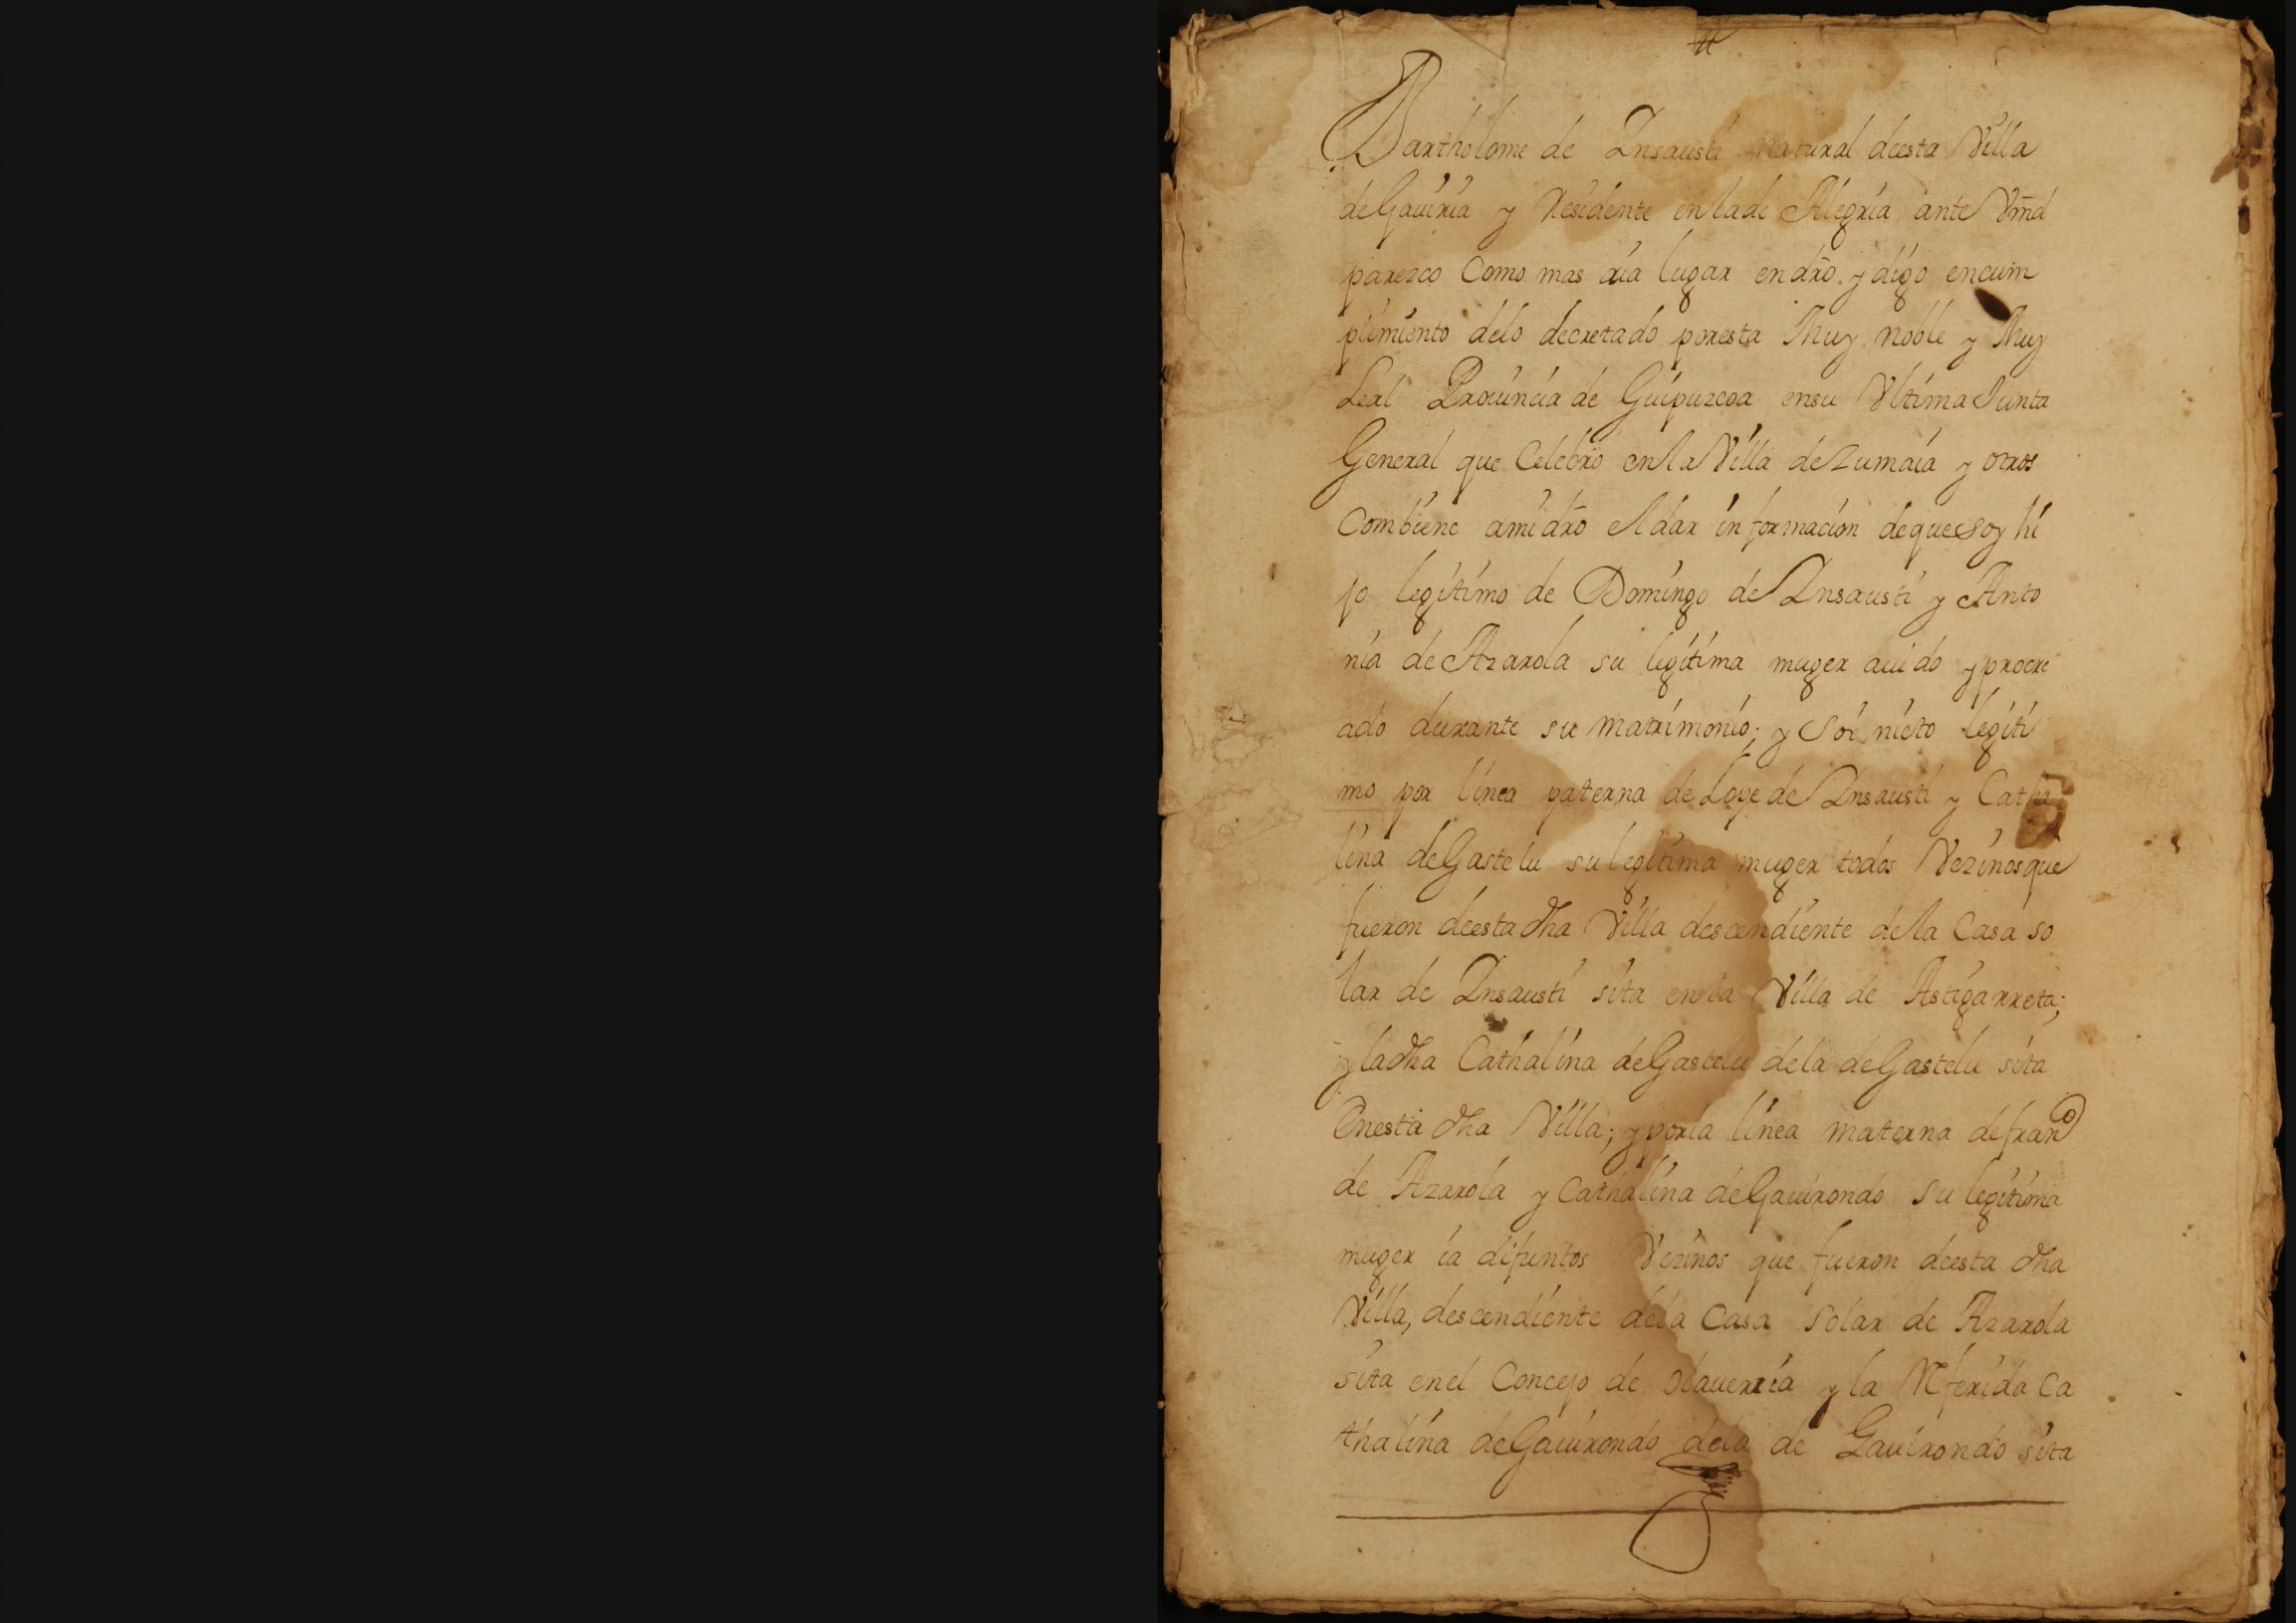 Bartholome de Insausti natural deesta Villa
de Gaviria y Residente en la de Alegria ante Vmd
parezco Como mas aia lugar en dro. y digo encum
plimiento delo decretado por esta Muy noble y Muy
Leal Provincia de Guipuzcoa ensu Vltima Junta
General que Celebro en la Villa de Zumaia y otros
Combiene ami dro el dar informacion de que Soy hi
jo legitimo de Domingo de Insausti y Anto
nia de Azarola su legitima muger avido y procre
ado durante su matrimonio; y Soi nieto legiti
mo por linea paterna de Lope de Insausti y Catha
lina de Gastelu su legitima muger todos Vezinos que
fueron deesta dha Villa descendiente de la Casa so
lar de Insausti sita en la Villa de Astigarreta;
y la dha Cathalina de Gastelu dela de Gastelu sita
Enesta dha Villa; y por la linea materna de franco
de Azarola y Cathalina de Gavirondo su legitima
muger ia difuntos Vezinos que fueron deesta dha
Villa, descendiente dela Casa Solar de Azarola
sita en el Concejo de Olaverria y la Referida Ca
thalina de Gavirondo dela de Gavirondo sita